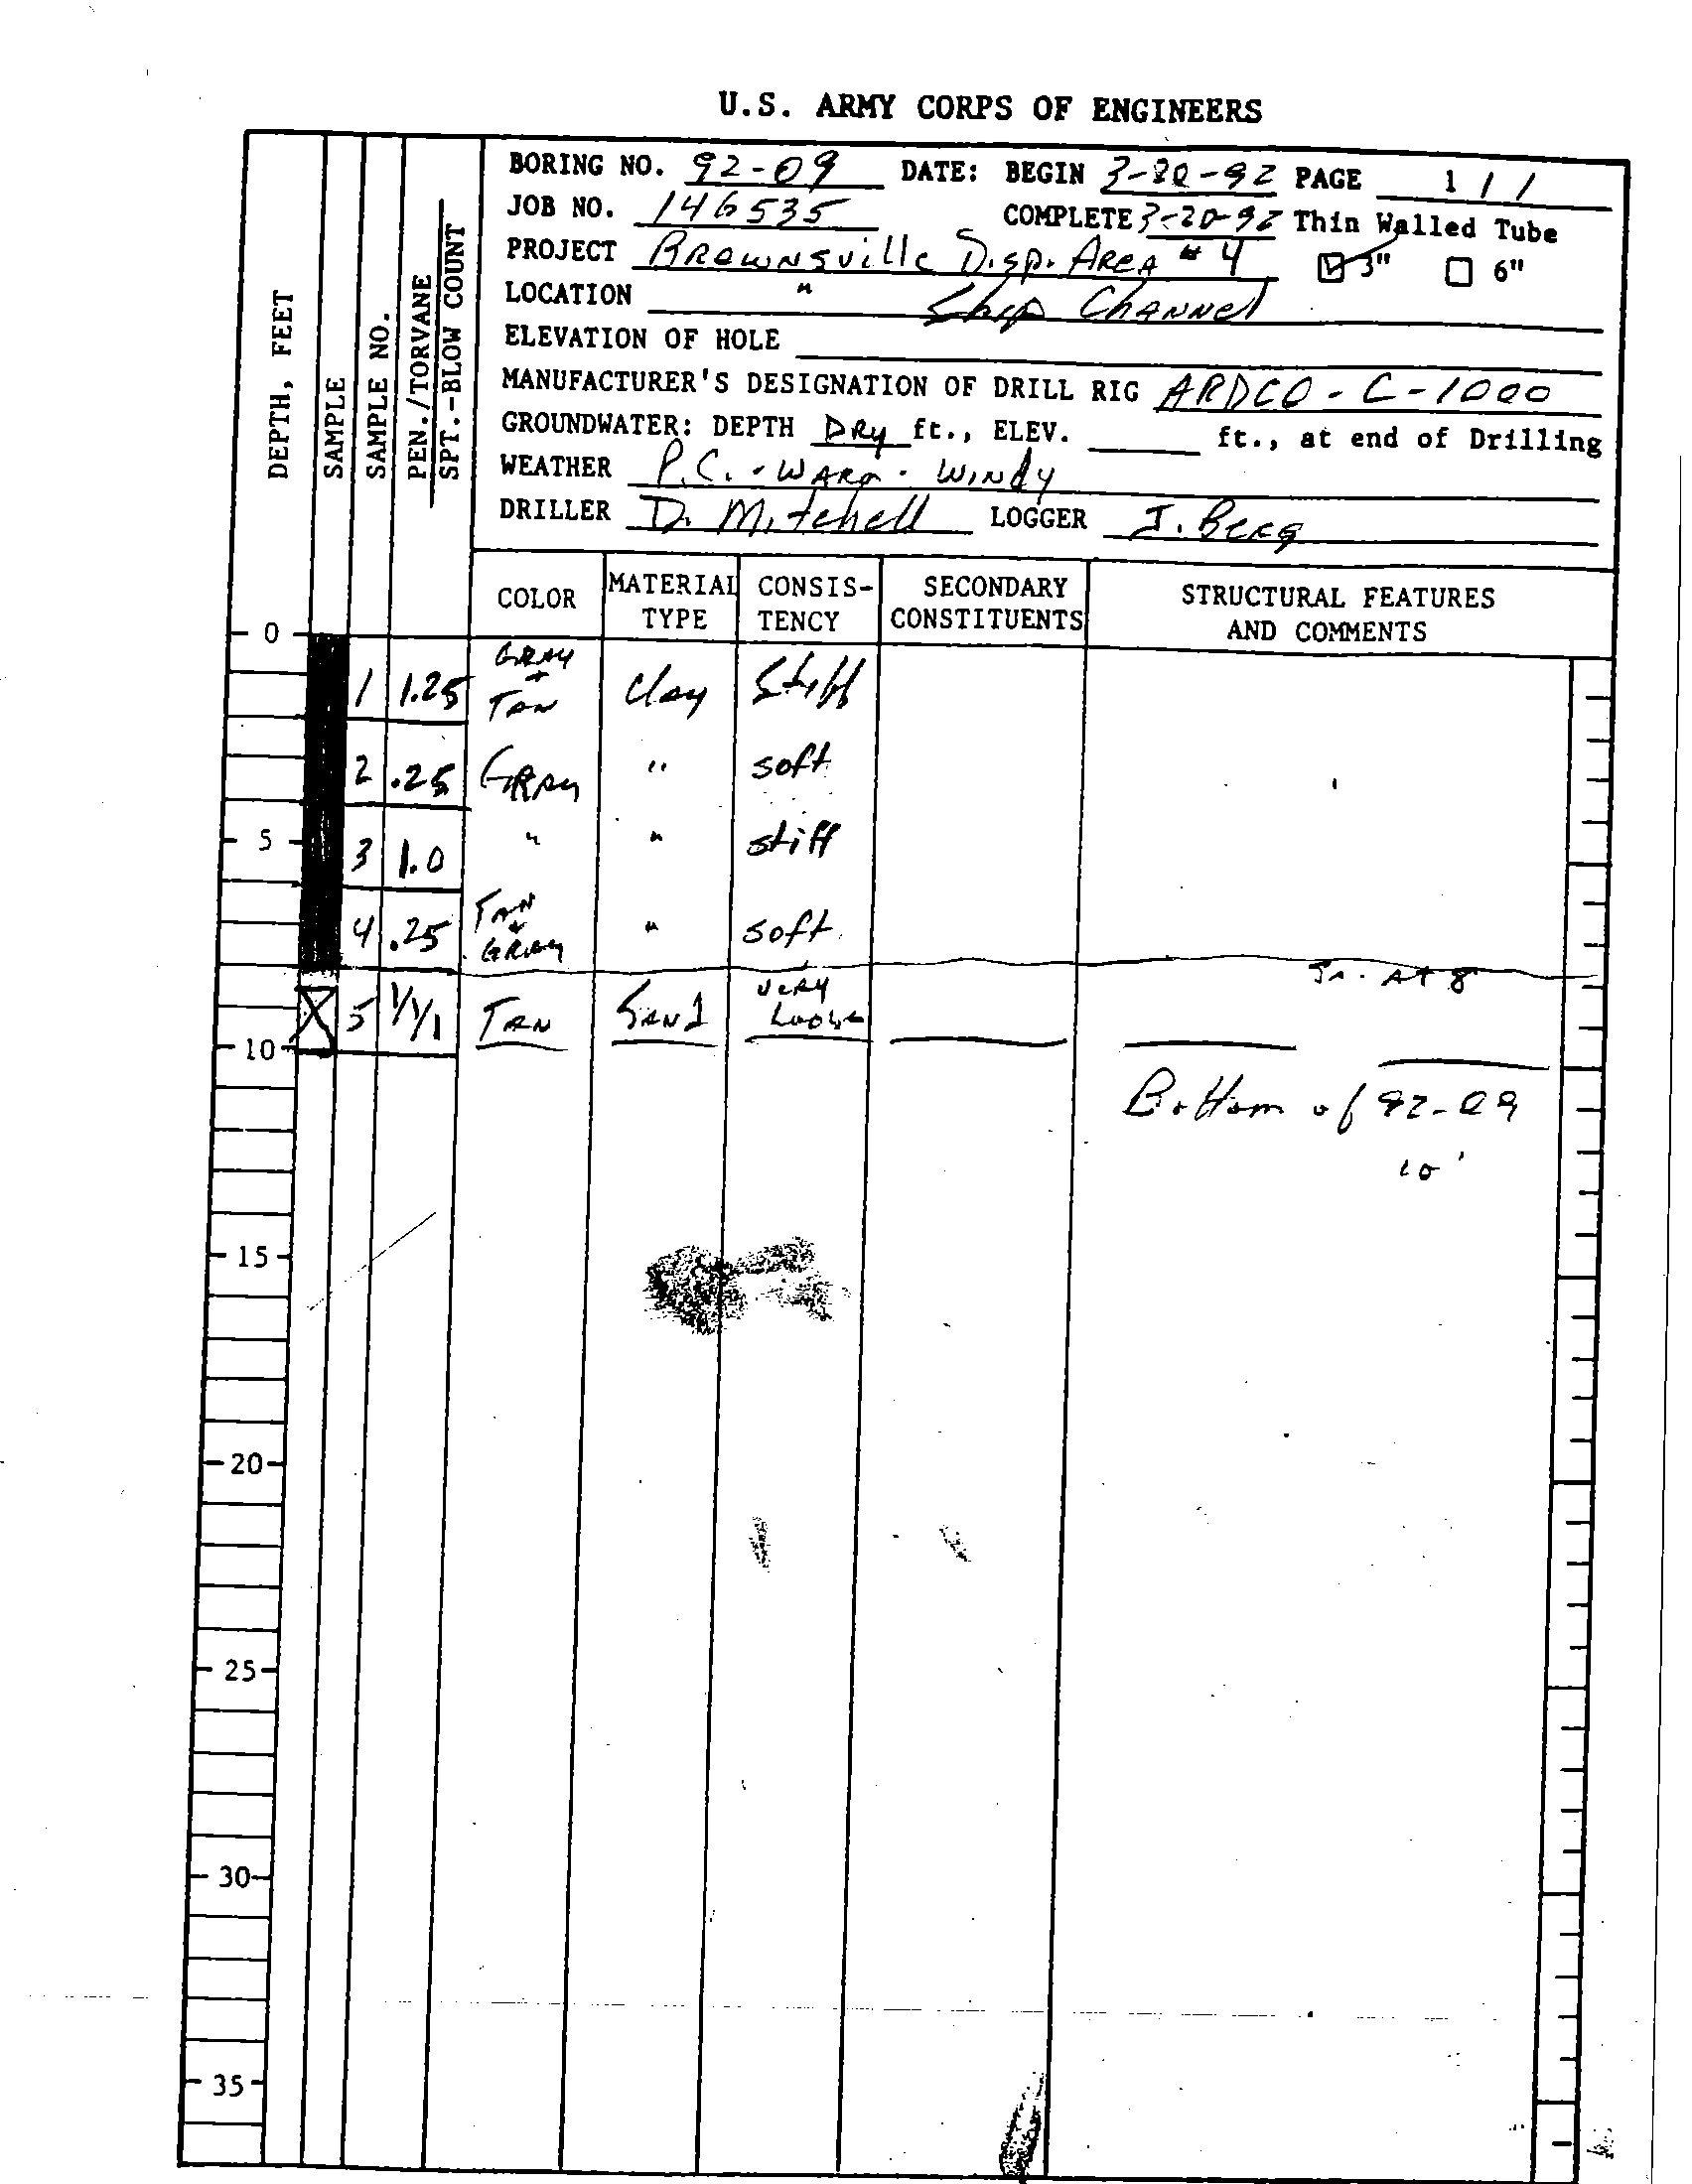 U.S. ARMY CORPS OF ENGINEERS
BORING NO. 92-09 DATE: BEGIN 3-20-92 PAGE 1 / 1
JOB NO. 146535 COMPLETE 3-20-92 Thin Walled Tube
PROJECT BROWNSVIlle Disp. AREA #4 3" 6"
LOCATION " Ship CHANNel
ELEVATION OF HOLE
MANUFACTURER'S DESIGNATION OF DRILL RIG ARDCO - C-1000
GROUNDWATER: DEPTH DRy ft., ELEV. ft., at end of Drilling
WEATHER P.C. - WARM - WINdy
DRILLER D. Mitchell LOGGER J. BERG
DEPTH, FEET
SAMPLE
SAMPLE NO.
PEN./TORVANE
SPT.-BLOW COUNT
COLOR MATERIAL TYPE CONSIS-TENCY SECONDARY CONSTITUENTS STRUCTURAL FEATURES AND COMMENTS
0
1 1.25 GRAY + TAN Clay Stiff
2 .25 GRAY " soft
5
3 1.0 " " stiff
4 .25 TAN + GRAY " soft
AT 8
5 1/1/1 TAN SANd VERY Loose
10
Bottom of 92-09
10'
15
20
25
30
35